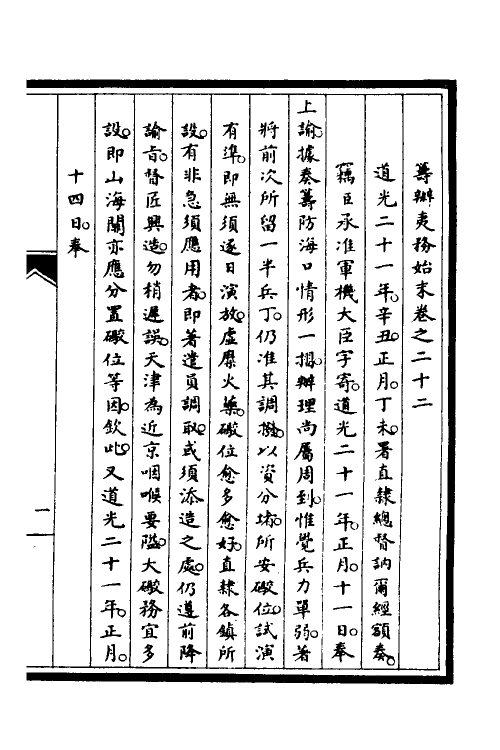 籌辦夷務始末卷之二十二
道光二十一年。辛丑。正月。丁未。署直隸總督訥爾經額奏。
竊臣承准軍機大臣字寄。道光二十一年。正月。十一日。奉
上諭。據奏籌防海口情形一摺。辦理尚屬周到。惟覺兵力單弱。著
將前次所留一半兵丁。仍准其調撥。以資分堵。所安礮位。試演
有準。即無須逐日演放。虛糜火藥。礮位愈多愈好。直隸各鎮所
設。有非急須應用者。即著遣員調取。或須添造之處。仍遵前降
諭旨。督匠興造。勿稍遲誤。天津為近京咽喉要隘。大礮務宜多
設。即山海關亦應分置礮位等因。欽此。又道光二十一年。正月。
十四日。奉
一